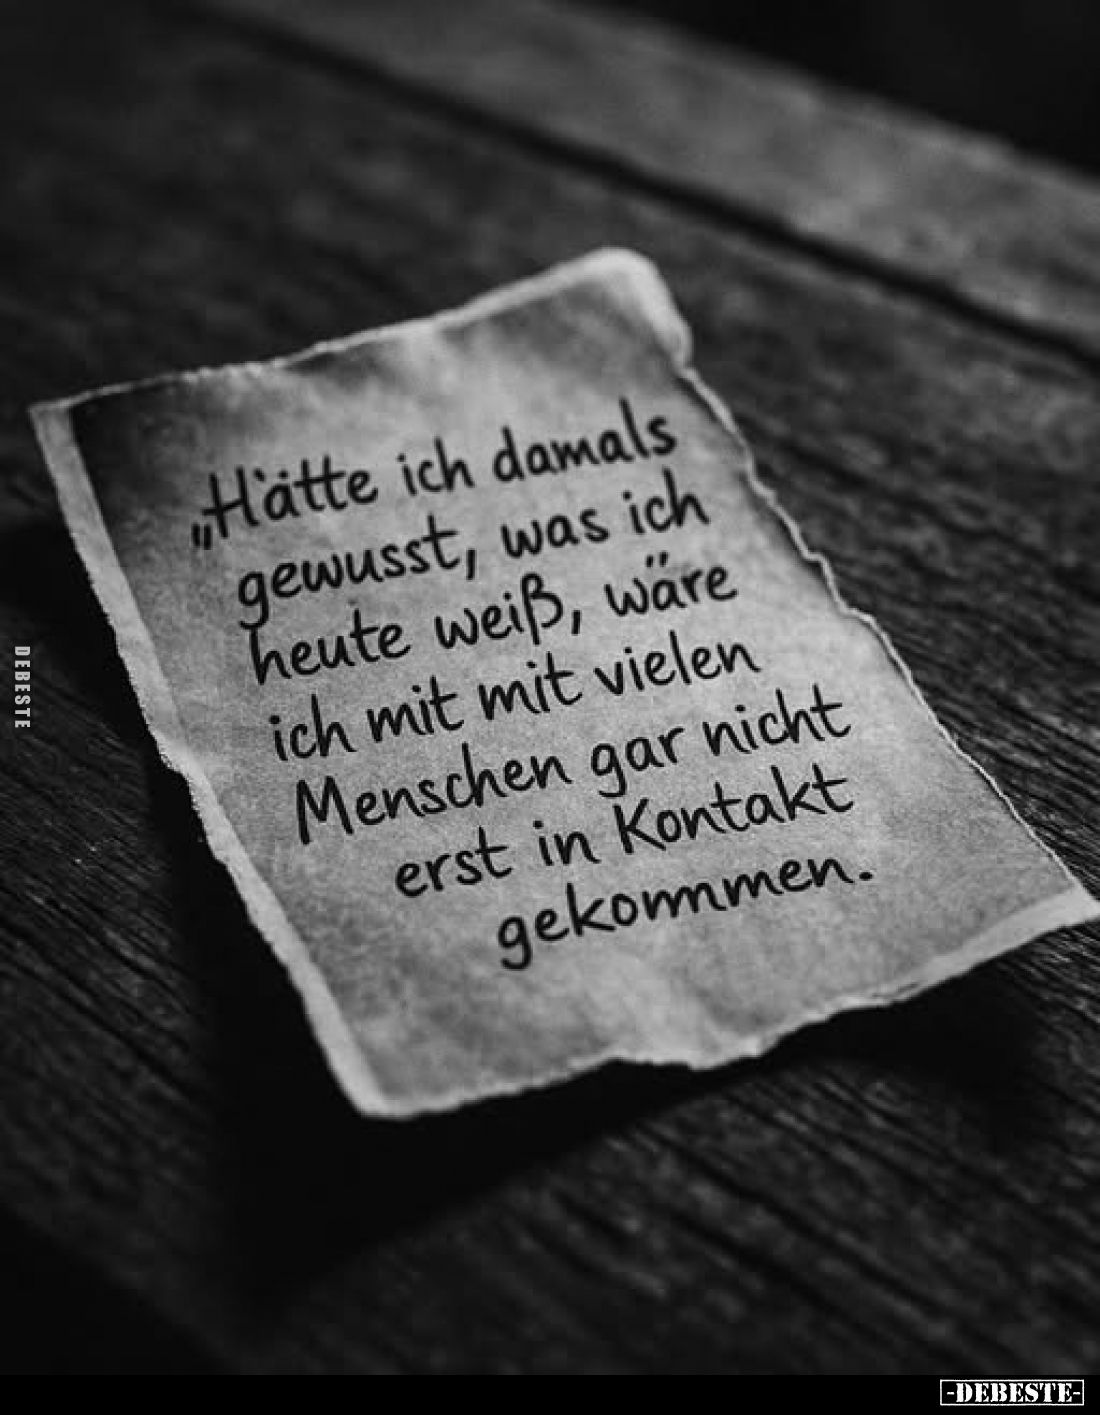 „Hätte ich damals
gewusst, was ich
heute weiß, wäre
ich mit mit vielen
Menschen gar nicht
erst in Kontakt
gekommmen.
DEBESTE
-DEBESTE-